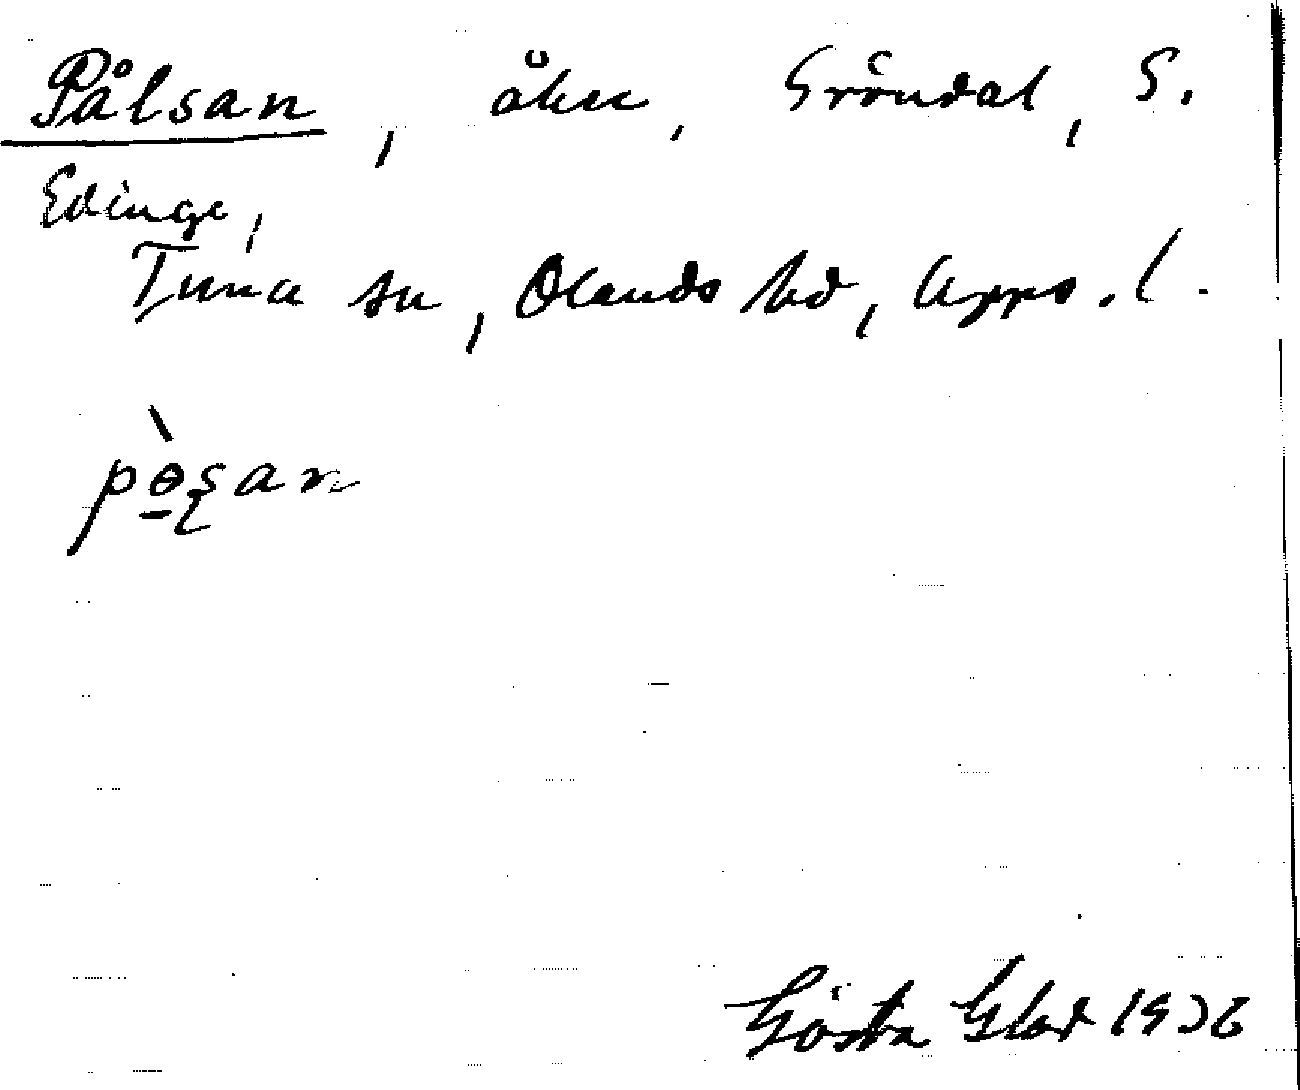 Pålsan, åker, Gröndal, S.
Edinge,
Tuna sn, Olands hd, Upps. l.
pɵ̠̀ʂan
Gösta Glad 1936